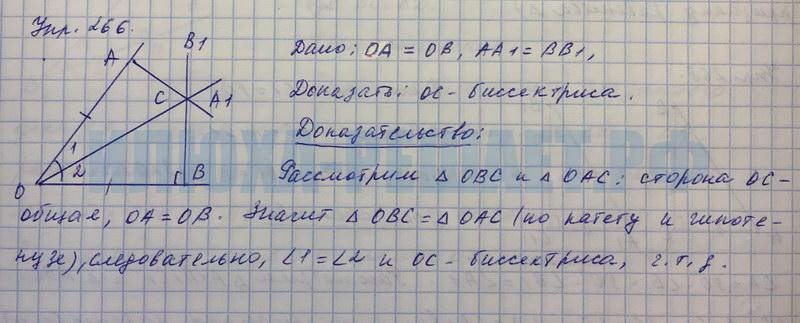 Упр. 266.
A
B1
C
A1
1
2
O
B
Дано: OA = OB, AA1 = BB1,
Доказать: OC - биссектриса.
Доказательство:
Рассмотрим △ OBC и △ OAC: сторона OC -
общая, OA = OB. Значит △ OBC = △ OAC (по катету и гипоте-
нузе), следовательно, ∠1 = ∠2 и OC - биссектриса, ч.т.д.